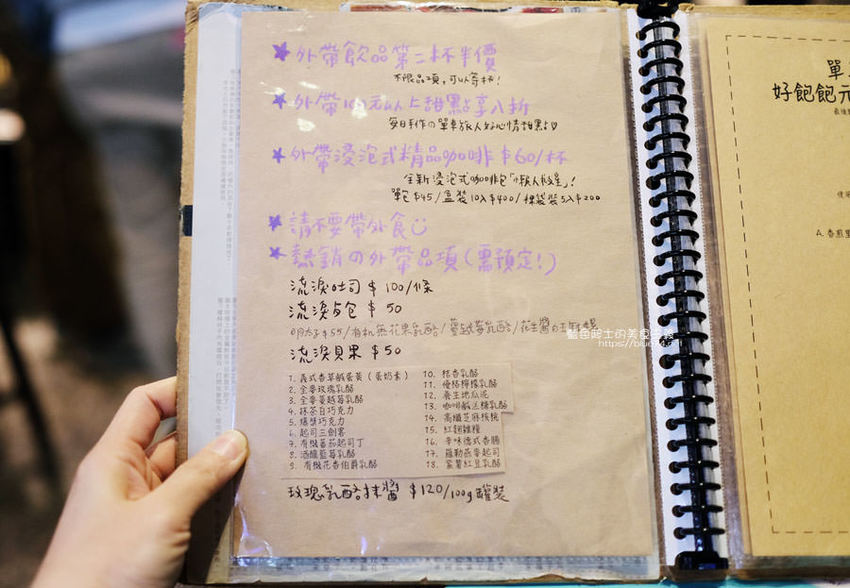 ★外帶飲品第二杯半價
不限品項,可以寄杯!
★外帶100元以上甜點享八折
每日手作の單車旅人好心情甜點♡
★外帶浸泡式精品咖啡$60/杯
全新浸泡式咖啡包「懶人救星」!
單包$45/盒裝10入$400/裸袋裝5入$200
★請不要帶外食
★熱銷の外帶品項(需預定!)
流淚吐司 $100/條
流淚歐包 $50
明太子$55/有机無花果乳酪/蔓越莓乳酪/花生醬
流淚貝果 $50
1. 義式香草鹹蛋黃(蛋奶素)
2. 全麥玫瑰乳酪
3. 全麥蔓越莓乳酪
4. 抹茶白巧克力
5. 爆漿巧克力
6. 起司三劍客
7. 有機蕃茄起司丁
8. 酒釀藍莓乳酪
9. 有機花香伯爵乳酪
10. 桔香乳酪
11. 優格檸檬乳酪
12. 養生地瓜泥
13. 咖啡鹹送糖乳酪
14. 高纖芝麻核桃
15. 紅麴雜糧
16. 辛味德式香腸
17. 羅勒燕麥起司
18. 紫薯紅豆乳酪
玫瑰乳酪抹醬 $120/100g罐裝
藍色騎士的美食生活
單
好飽飽元
最後
使用
A. 香煎里